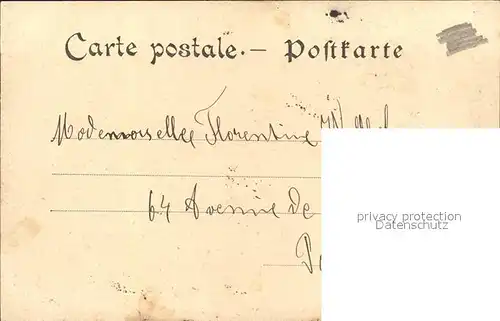 Carte postale. — Postkarte
Mademoiselle Florentine
64 Avenue de
privacy protection
Datenschutz